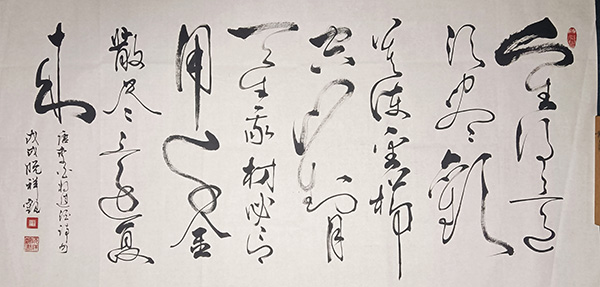 人生得意
须尽歡
莫使金樽
空对月
天生我材必有
用千金
散尽还复
来
唐李白将进酒诗句
戊戌晓祥